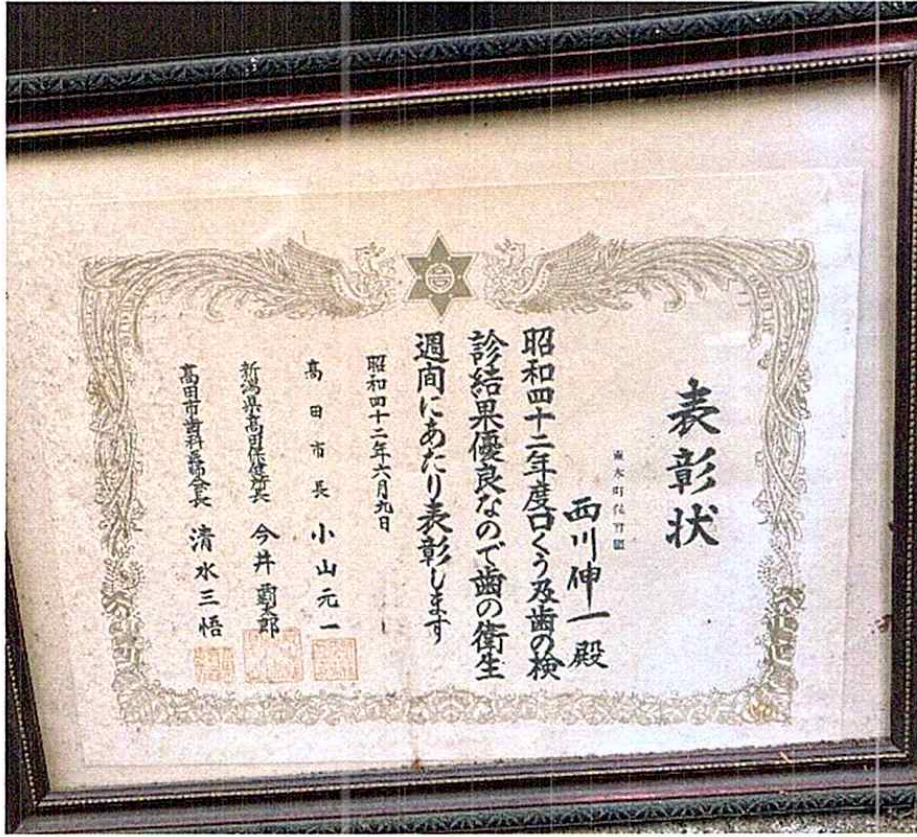 表彰状
東本町保育園
西川伸一殿
昭和四十二年度口くう及歯の検
診結果優良なので歯の衛生
週間にあたり表彰します
昭和四十二年六月九日
高田市長 小山元一
新潟県高田保健所長 今井
高田市歯科医師会長 清水三悟